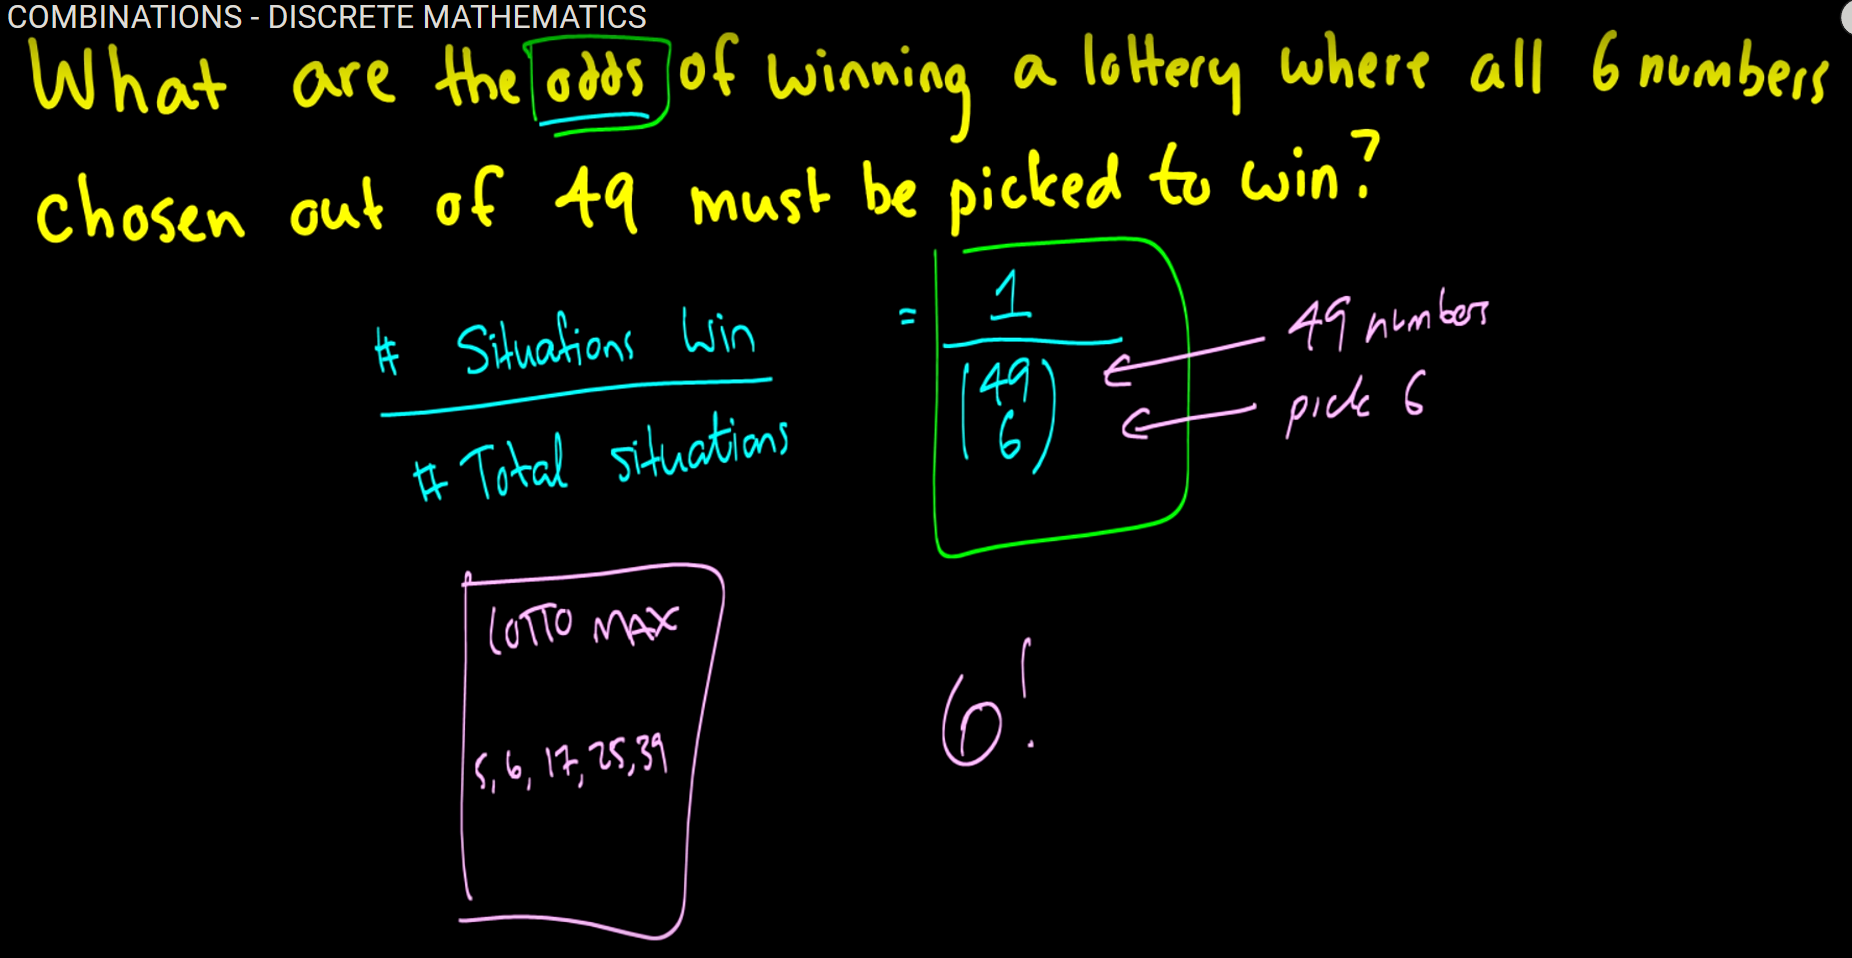 COMBINATIONS - DISCRETE MATHEMATICS
What are the odds of winning a lottery where all 6 numbers
chosen out of 49 must be picked to win?
# Situations Win
# Total situations
=
1
(49
6)
49 numbers
pick 6
LOTTO MAX
5, 6, 17, 25, 39
6!